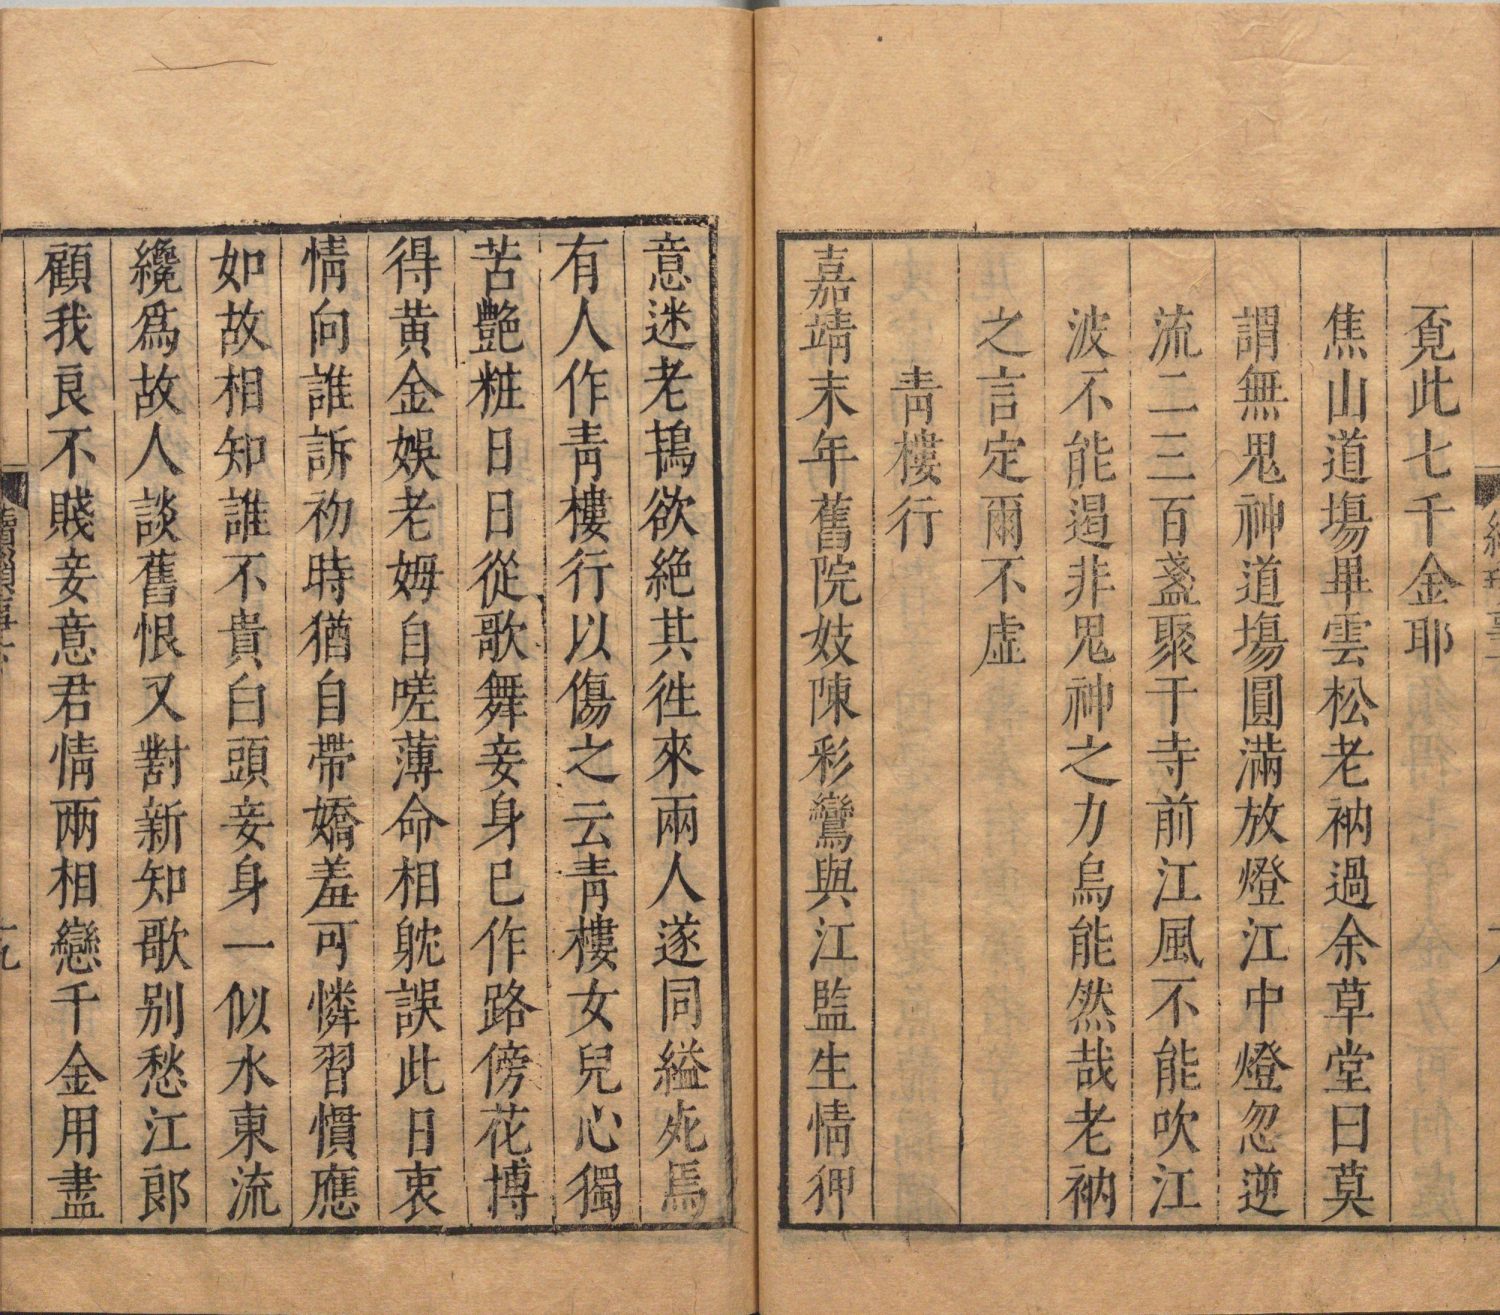 覔此七千金耶
焦山道場畢雲松老衲過余草堂曰莫
謂無鬼神道塲圓滿放燈江中燈忽逆
流二三百盞聚于寺前江風不能吹江
波不能遏非鬼神之力烏能然哉老衲
之言定爾不虛
青樓行
嘉靖末年舊院妓陳彩鸞與江監生情狎
意迷老鴇欲絶其徃來兩人遂同縊死焉
有人作青樓行以傷之云青樓女兒心獨
苦艶粧日日從歌舞妾身已作路傍花博
得黄金娛老姆自嗟薄命相躭誤此日衷
情向誰訴初時猶自帶嬌羞可憐習慣應
如故相知誰不貴白頭妾身一似水東流
纔爲故人談舊恨又對新知歌别愁江郎
顧我良不賤妾意君情两相戀千金用盡